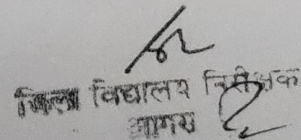 जिला विद्यालय निरीक्षक
आगरा